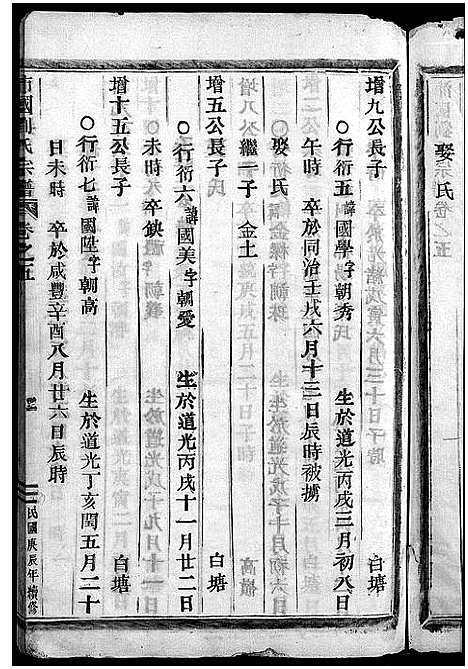 娶氏
增九公長子 白塘
○行衍五諱國學字朝秀 生於道光丙戌三月初八日
午時 卒於同治壬戌六月十三日辰時被擄
娶氏
繼一子 金土
增五公長子 白塘
○行衍六諱國美字朝愛 生於道光丙戌十一月廿二日
未時 卒缺
增十五公長子 白塘
○行衍七諱國陞字朝高 生於道光丁亥閏五月二十
日未時 卒於咸豐辛酉八月廿六日辰時
氏宗譜 卷之五
民國庚辰年續修